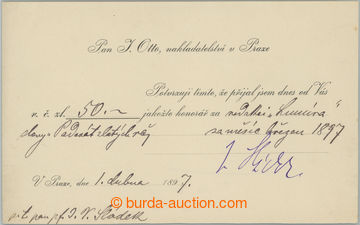 Pan J. Otto, nakladatelství v Praze
Potvrzuji tímto, že přijal jsem dnes od Vás
v. č. zl. 50.– jakožto honorář za redakci „Lumíra“
slovy: Padesát zlatých r. č. za měsíc březen 1897
V Praze, dne 1. dubna 1897.
pan J. V. Sládek
burda-auction.com